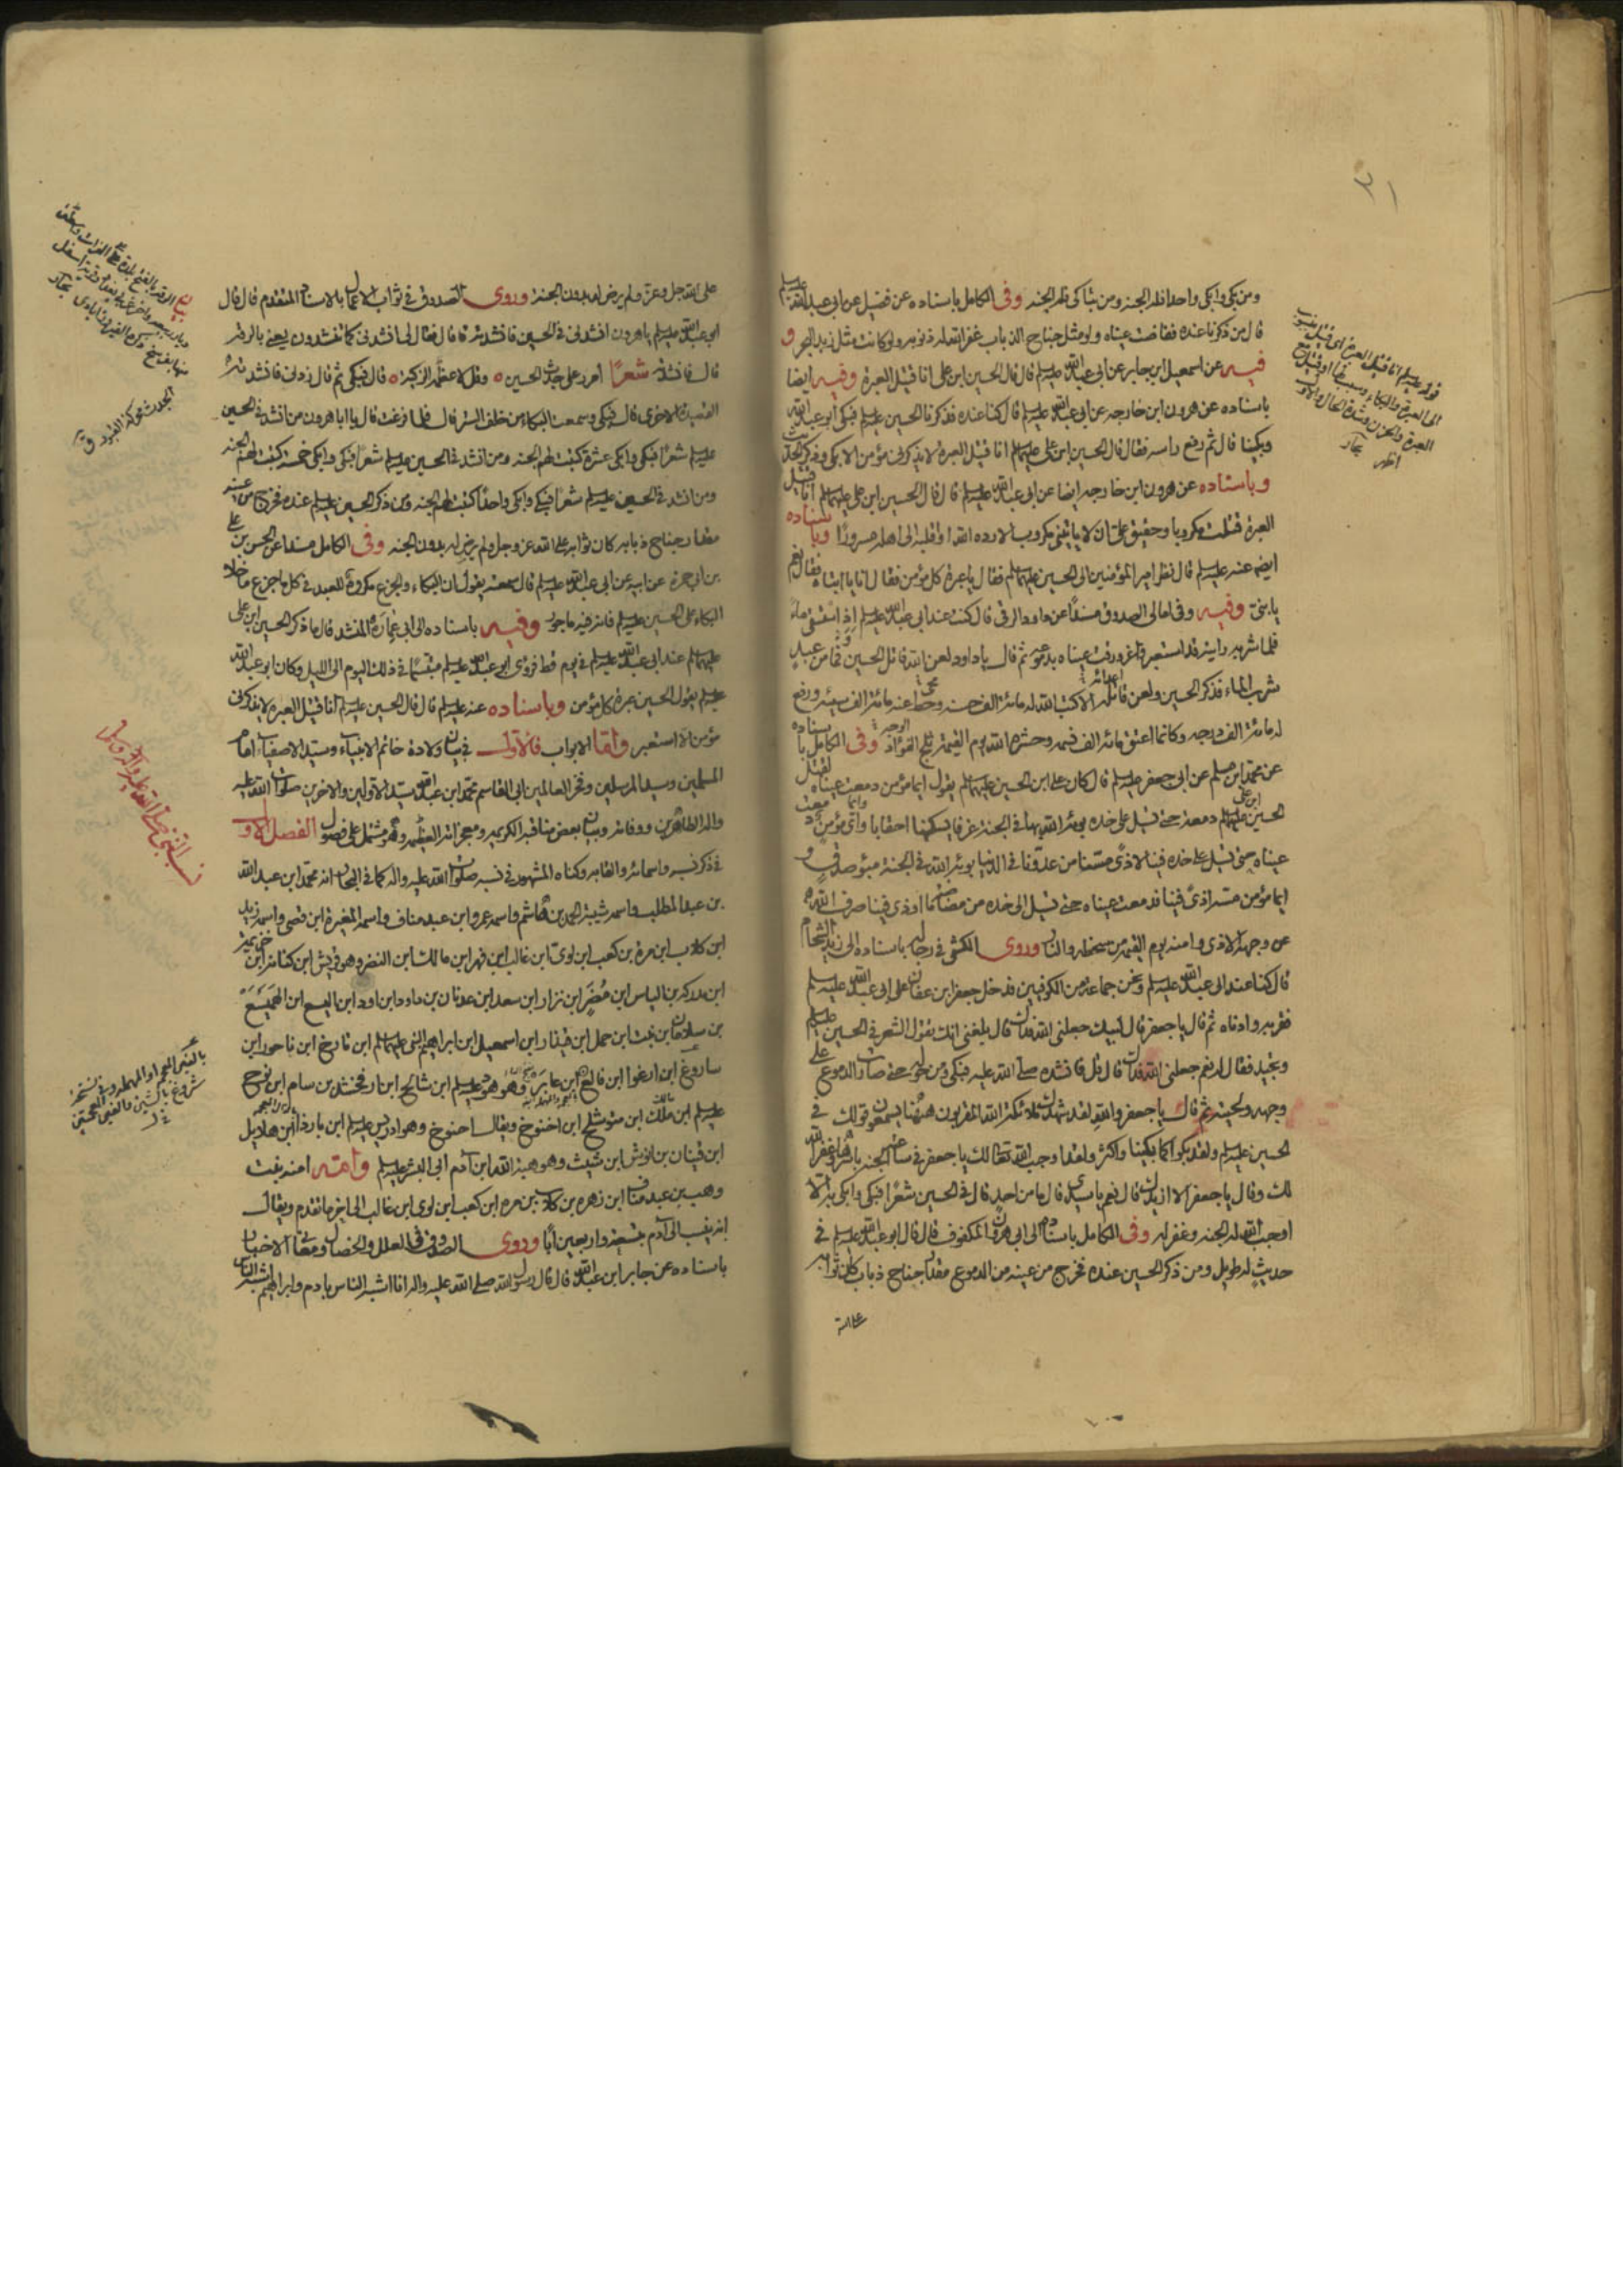 ٣١
ومن بكى وابكى واحدا فله الجنه ومن تباكى فله الجنه وفى الكامل باسناده عن فضيل عن ابى عبد الله عليه السلم
قال من ذكرنا عنده ففاضت عيناه ولو مثل جناح الذباب غفر الله له ذنوبه ولو كانت مثل زبد البحر و
فيه عن اسمعيل ابن جابر عن ابى عبد الله عليه السلم قال قال الحسين ابن على انا قتيل العبرة وفيه ايضا
باسناده عن هرون ابن خارجه عن ابى عبد الله عليه السلم قال كنا عنده فذكرنا الحسين عليه السلم فبكى ابو عبد الله
وبكينا قال ثم رفع راسه فقال قال الحسين ابن على عليهما السلم انا قتيل العبرة لا يذكرنى مؤمن الا بكى وذكر الحديث
وباسناده عن هرون ابن خارجه ايضا عن ابى عبد الله عليه السلم قال قال الحسين ابن على عليهما السلم انا قتيل
العبرة قتلت مكروبا وحقيق على ان لا ياتينى مكروب الا رده الله او اقلبه الى اهله مسرورا وباسناده
ايضا عنه عليه السلم قال نظر امير المؤمنين الى الحسين عليهما السلم فقال يا عبرة كل مؤمن فقال انا يا ابتاه فقال نعم
يا بنى وفيه وفى امالى الصدوق مسندا عن داود الرقى قال كنت عند ابى عبد الله عليه السلم اذ استسقى ماء
فلما شربه رايته قد استعبر واغرورقت عيناه بدموعه ثم قال يا داود لعن الله قاتل الحسين فما من عبد
شرب الماء فذكر الحسين ولعن قاتله الا كتب الله له مائة الف حسنه وحط عنه مائة الف سيئه ورفع
له مائة الف درجه وكانما اعتق مائة الف نسمه وحشره الله يوم القيمة ثلج الفؤاد وفى الكامل باسناده
عن محمد ابن مسلم عن ابى جعفر عليه السلم قال كان على ابن الحسين عليهما السلم يقول ايما مؤمن دمعت عيناه لقتل
الحسين ابن على عليهما السلم دمعة حتى تسيل على خده بوئه الله بها فى الجنة غرفا يسكنها احقابا وايما مؤمن دمعت
عيناه حتى تسيل على خده فينا لاذى مسنا من عدونا فى الدنيا بوئه الله فى الجنة مبوء صدق و
ايما مؤمن مسه اذى فينا فدمعت عيناه حتى تسيل الى خده من مضاضة ما اوذى فينا صرف الله
عن وجهه الاذى وامنه يوم القيمه من سخطه والنار وروى الكشى فى رجاله باسناده الى زيد الشحام
قال كنا عند ابى عبد الله عليه السلم ونحن جماعة من الكوفيين فدخل جعفر ابن عفان على ابى عبد الله عليه السلم
فقربه وادناه ثم قال يا جعفر قال لبيك جعلنى الله فداك قال بلغنى انك تقول الشعر فى الحسين عليه السلم
وتجيد فقال له نعم جعلنى الله فداك قال قل فانشده صلى الله عليه فبكى ومن حوله حتى صارت الدموع على
وجهه ولحيته ثم قال يا جعفر والله لقد شهدك ملائكة الله المقربون ههنا يسمعون قولك فى
الحسين عليه السلم ولقد بكوا كما بكينا واكثر ولقد اوجب الله تعالى لك يا جعفر فى ساعته الجنه باسرها وغفر الله
لك وقال يا جعفر الا ازيدك قال نعم يا سيدى قال ما من احد قال فى الحسين شعرا فبكى وابكى به الا
اوجب الله له الجنه وغفر له وفى الكامل باسناده الى ابى هرون المكفوف قال قال ابو عبد الله عليه السلم فى
حديث له طويل ومن ذكر الحسين عنده فخرج من عينه من الدموع مقدار جناح ذباب كان ثوابه
على الله
قوله عليه السلم انا قتيل العبرة اى قتيل منسوب
الى العبرة والبكاء وسبب لها او قتل مع
العبرة والحزن وشدة الحال والاول
اظهر بحار
على الله جل وعز ولم يرض له بدون الجنة وروى الصدوق فى ثواب الاعمال بالاسناد المتقدم قال قال
ابو عبد الله عليه السلم يا با هرون انشدنى فى الحسين فانشدته قال فقال لى انشدنى كما تنشدون يعنى بالرقة
قال فانشدته شعرا امرر على جدث الحسين ٥ وقل لاعظمه الزكية ٥ قال فبكى ثم قال زدنى فانشدته
القصيدة الاخرى قال فبكى وسمعت البكاء من خلف الستر قال فلما فرغت قال يا ابا هرون من انشد فى الحسين
عليه السلم شعرا فبكى وابكى عشرة كتبت لهم الجنه ومن انشد فى الحسين عليه السلم شعرا فبكى وابكى خمسة كتبت لهم الجنه
ومن انشد فى الحسين عليه السلم شعرا فبكى وابكى واحدا كتبت لهم الجنه ومن ذكر الحسين عليه السلم عنده فخرج من عينه
مقدار جناح ذبابه كان ثوابه على الله عز وجل ولم يرض له بدون الجنه وفى الكامل مسندا عن الحسن بن على
بن ابى حمزة عن ابيه عن ابى عبد الله عليه السلم قال سمعته يقول ان البكاء والجزع مكروه للعبد فى كل ما جزع ما خلا
البكاء على الحسين عليه السلم فانه فيه ماجور وفيه باسناده الى ابى عمارة المنشد قال ما ذكر الحسين ابن على
عليهما السلم عند ابى عبد الله عليه السلم فى يوم قط فرؤى ابو عبد الله عليه السلم متبسما فى ذلك اليوم الى الليل وكان ابو عبد الله
عليه السلم يقول الحسين عبرة كل مؤمن وباسناده عنه عليه السلم قال قال الحسين عليه السلم انا قتيل العبره لا يذكرنى
مؤمن الا استعبر واما الابواب فالاول فى بيان ولادة خاتم الانبياء وسيد الاصفياء امام
المسلمين وسيد المرسلين وفخر العالمين ابى القاسم محمد ابن عبد الله سيد الاولين والاخرين صلوات الله عليه
واله الطاهرين ووفاته وبيان بعض مناقبه الكريمه ومعجزاته العظيمه وهو مشتمل على فصول الفصل الاول
فى ذكر نسبه واسمائه والقابه وكناه المشهور فى نسبه صلوات الله عليه واله كما فى البحار انه محمد ابن عبد الله
بن عبد المطلب واسمه شيبة الحمد بن هاشم واسمه عمرو ابن عبد مناف واسمه المغيرة ابن قصى واسمه زيد
ابن كلاب ابن مرة بن كعب ابن لوى ابن غالب ابن فهر ابن مالك ابن النضر وهو قريش ابن كنانة ابن خزيمة
ابن مدركه بن الياس ابن مضر ابن نزار ابن سعد ابن عدنان بن ادد ابن اود ابن اليسع ابن الهميسع
بن سلامان ابن نبت ابن حمل ابن قيذار ابن اسمعيل ابن ابراهيم النبى عليهما السلم ابن تارخ ابن ناحور ابن
ساروغ ابن ارغوا ابن فالغ ابن عابر وهو هود عليه السلم ابن شالخ ابن ارفخشد بن سام ابن نوح
عليه السلم ابن ملك ابن متوشلخ ابن اخنوخ ويقال احنوخ وهو ادريس عليه السلم ابن يارد ابن هلاديل
ابن قينان بن انوش ابن شيث وهو هبة الله ابن آدم ابى البشر عليه السلم وامه امنه بنت
وهب بن عبد مناف ابن زهره بن كلاب بن مره ابن كعب ابن لوى ابن غالب الى اخر ما تقدم ويقال
انه ينسب الى آدم بتسعة واربعين ابا وروى الصدوق فى العلل والخصال ومعانى الاخبار
باسناده عن جابر ابن عبد الله قال قال رسول الله صلى الله عليه واله انا اشبه الناس بادم وابراهيم اشبه الناس
بيان الرقة بالفتح بلدة على الفرات
الجدث محركة القبر ق
نسب النبى صلى الله عليه واله وسلم